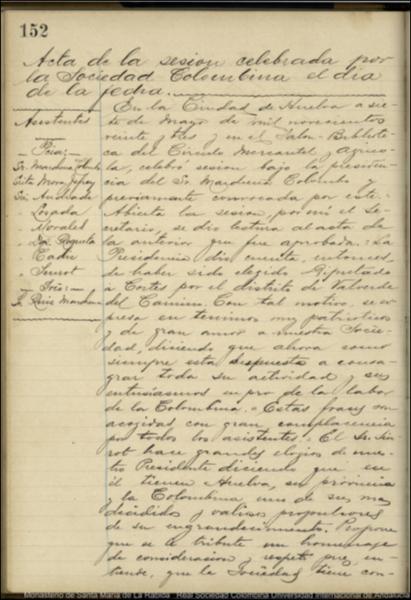 152
Acta de la sesion celebrada por
la Sociedad Colombina el dia
de la fecha.
Asistentes
Psia:
Sr. Marchena Colombo
Srta Mora
Sr. Andrade
Losada
Morales
La Roqueta
Cadiz
Siurot
Srio:
Sr. Ruiz Marchena
En la Ciudad de Huelva a sie-
te de Mayo de mil novecientos
veinte y tres y en el Salon-Bibliote-
ca del Circulo Mercantil y Agrico-
la, celebró sesion bajo la presiden-
cia del Sr. Marchena Colombo y
previamente convocada por este.
Abierta la sesion, por mi el Se-
cretario, se dio lectura al acta de
la anterior que fue aprobada. La
Presidencia dio cuenta, entonces,
de haber sido elegido Diputado
a Cortes por el distrito de Valverde
del Camino. Con tal motivo, se ex-
presa en terminos muy patrioticos
y de gran amor a nuestra Socie-
dad, diciendo que ahora como
siempre esta dispuesto a consa-
grar toda su actividad y sus
entusiasmos en pro de la labor
de la Colombina. Estas frases son
acogidas con gran complacencia
por todos los asistentes. El Sr. Siu-
rot hace grandes elogios de nues-
tro Presidente diciendo que en
él tienen Huelva, su provincia
y la Colombina uno de sus mas
decididos y valiosos propulsores
de su engrandecimiento. Propone
que se le tribute un homenaje
de consideracion y respeto pues, en-
tiende, que la Sociedad tiene con-
Monasterio de Santa María de La Rábida · Real Sociedad Colombina Universidad Internacional de Andalucía